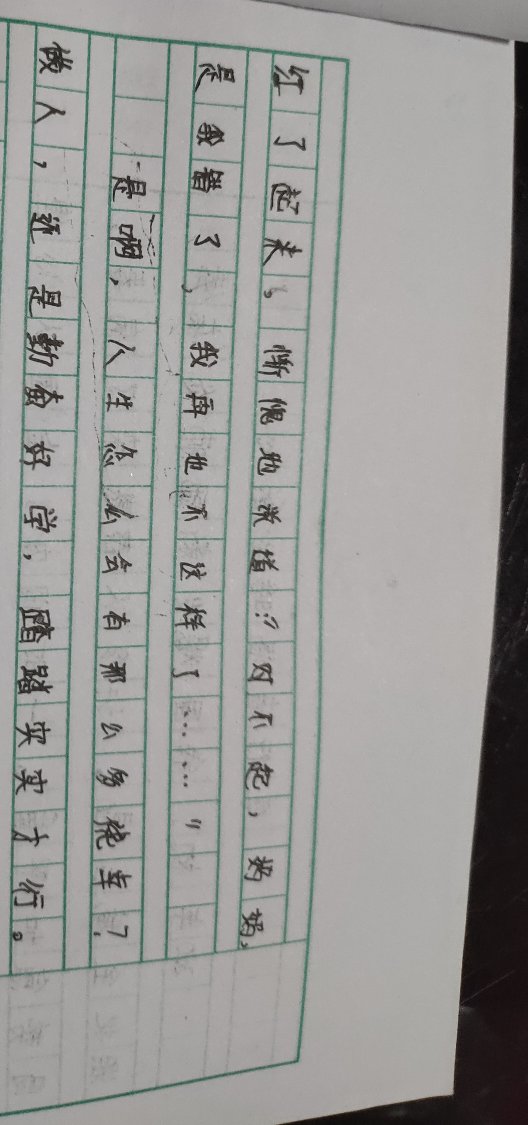 红了起来，惭愧地说道：“对不起，妈妈，
是我错了，我再也不这样了……”
是啊，人生怎么会有那么多捷车？
做人，还是勤奋好学，踏踏实实才行。